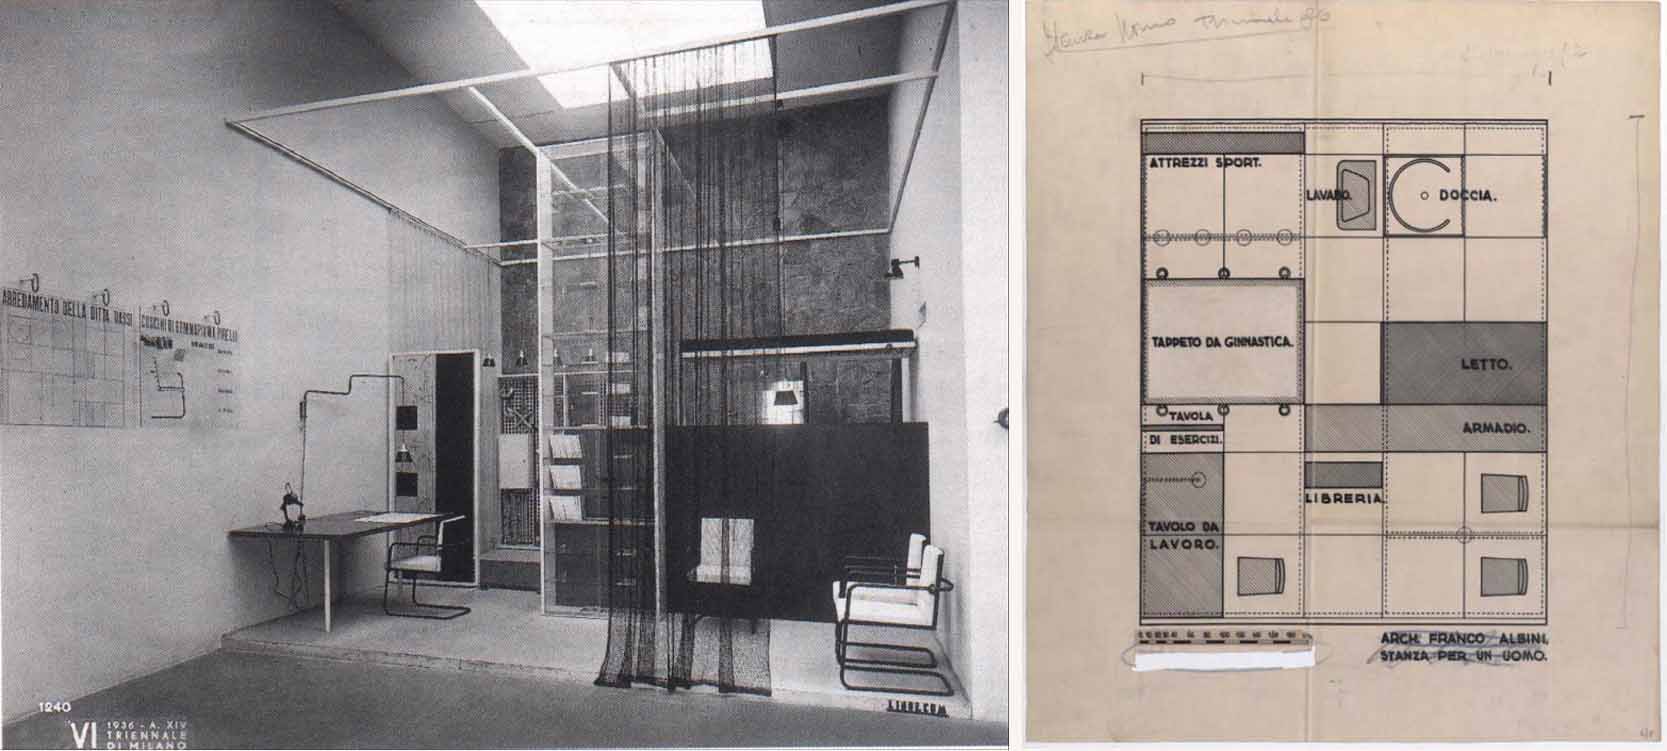 ARREDAMENTO DELLA DITTA
CUSCINI DI GOMMAPIUMA PIRELLI
1240
VI
1936 - A. XIV
TRIENNALE
DI MILANO
Stanza Uomo Triennale 36
ATTREZZI SPORT.
LAVABO.
DOCCIA.
TAPPETO DA GINNASTICA.
LETTO.
TAVOLA
DI ESERCIZI.
ARMADIO.
LIBRERIA.
TAVOLO DA
LAVORO.
ARCH. FRANCO ALBINI.
STANZA PER UN UOMO.